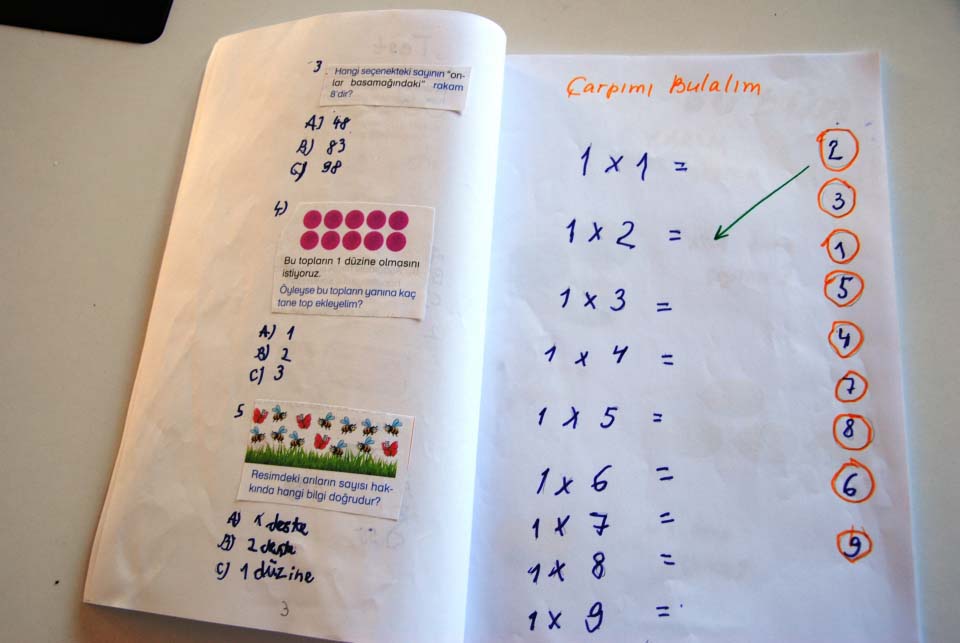 3
Hangi seçenekteki sayının "on-
lar basamağındaki" rakam
8'dir?
A) 48
B) 83
C) 98
4)
Bu topların 1 düzine olmasını
istiyoruz.
Öyleyse bu topların yanına kaç
tane top ekleyelim?
A) 1
B) 2
C) 3
5
Resimdeki arıların sayısı hak-
kında hangi bilgi doğrudur?
A) 1 deste
B) 2 deste
C) 1 düzine
3
Çarpımı Bulalım
1 x 1 =
1 x 2 =
1 x 3 =
1 x 4 =
1 x 5 =
1 x 6 =
1 x 7 =
1 x 8 =
1 x 9 =
2
3
1
5
4
7
8
6
9